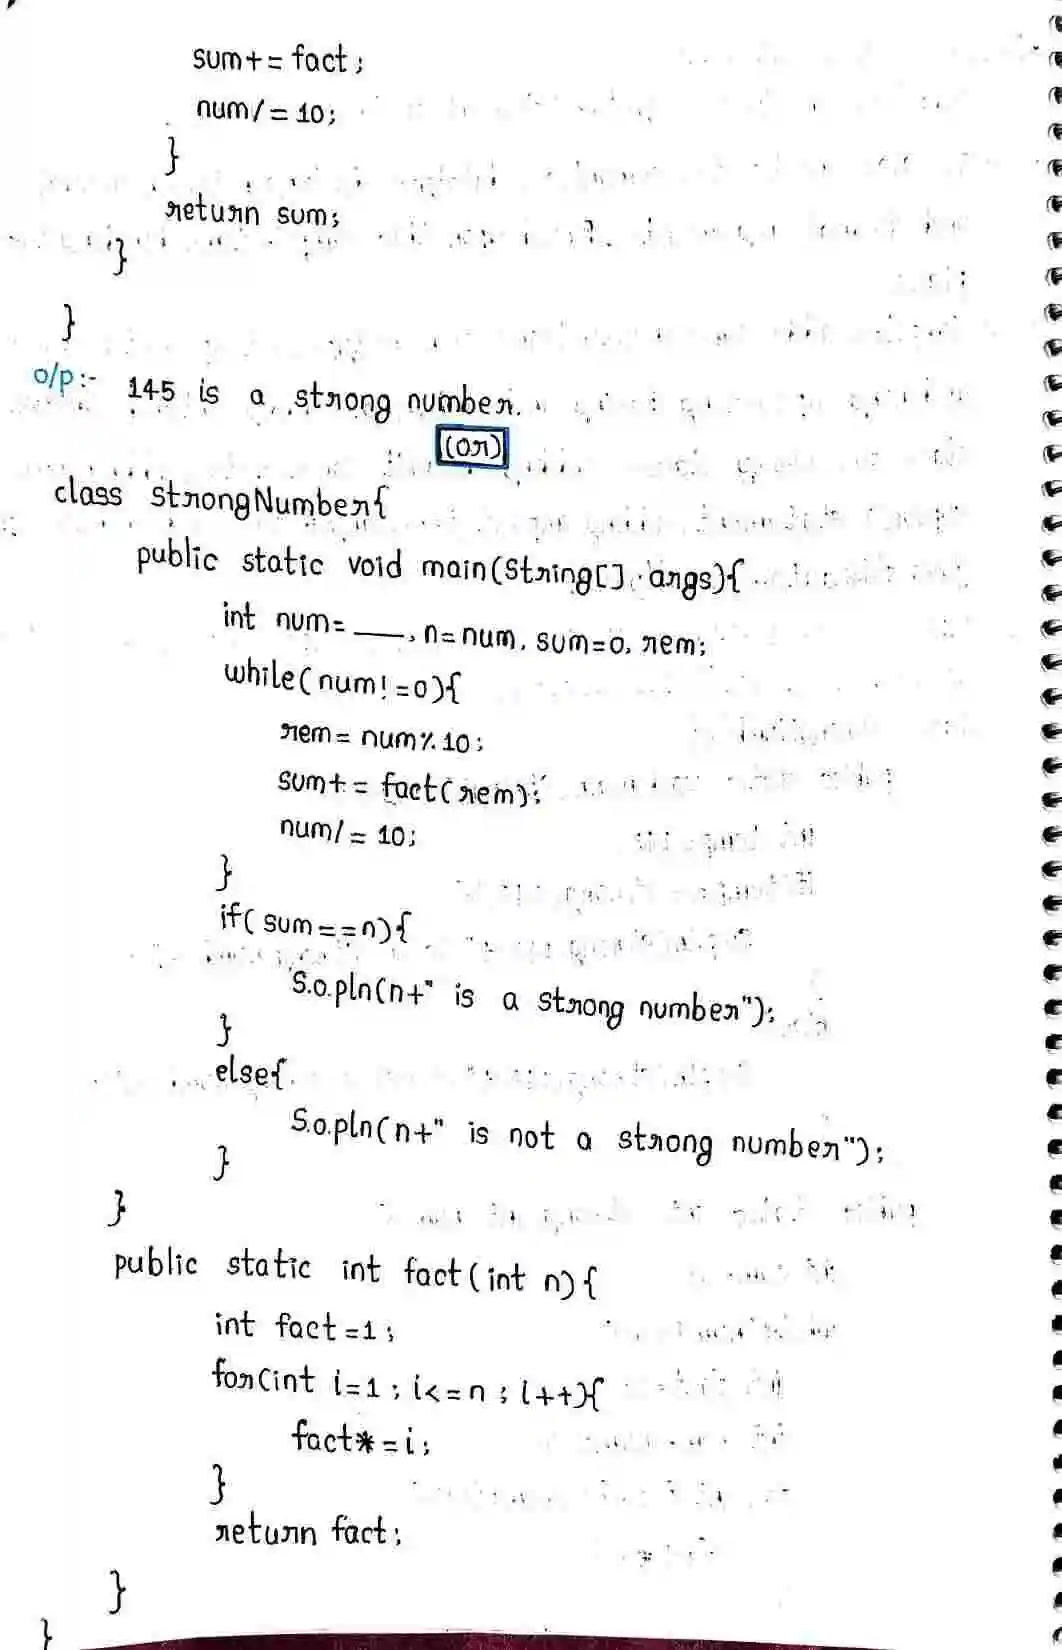 sum+= fact;
num/= 10;
}
return sum;
}
}
o/p:- 145 is a strong number.
(or)
class strongNumber{
public static void main(String[] args){
int num= ___, n=num, sum=0, rem;
while(num!=0){
rem= num%10;
sum+= fact(rem);
num/= 10;
}
if(sum==n){
S.o.pln(n+" is a strong number");
}
else{
S.o.pln(n+" is not a strong number");
}
}
public static int fact(int n){
int fact=1;
for(int i=1; i<=n; i++){
fact*=i;
}
return fact;
}
}